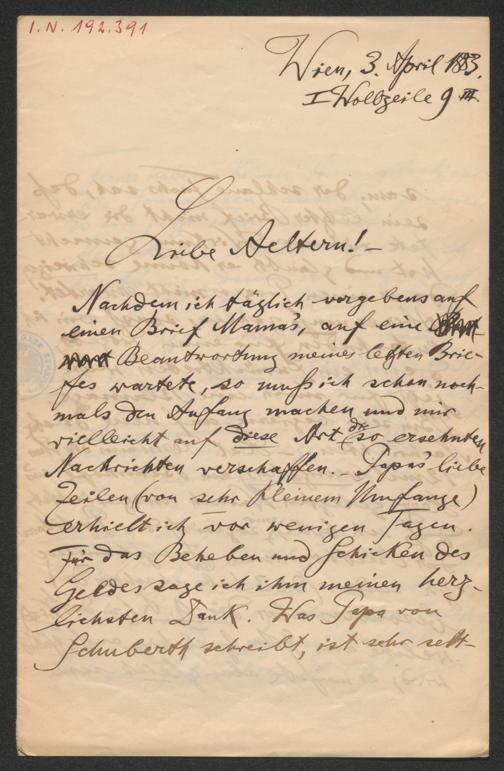 I.N. 192.391
Wien, 3. April 1883.
I Wollzeile 9 III.
Liebe Aeltern! –
Nachdem ich täglich vergebens auf
einen Brief Mama's, auf eine
Beantwortung meines letzten Brie-
fes wartete, so muß ich schon noch-
mals den Anfang machen und mir
vielleicht auf diese Art die so ersehnten
Nachrichten verschaffen. – Papa's liebe
Zeilen (von sehr kleinem Umfange)
erhielt ich vor wenigen Tagen.
Für das Beheben und Schicken des
Geldes sage ich ihm meinen herz-
lichsten Dank. Was Papa von
Schuberth schreibt, ist sehr selt-